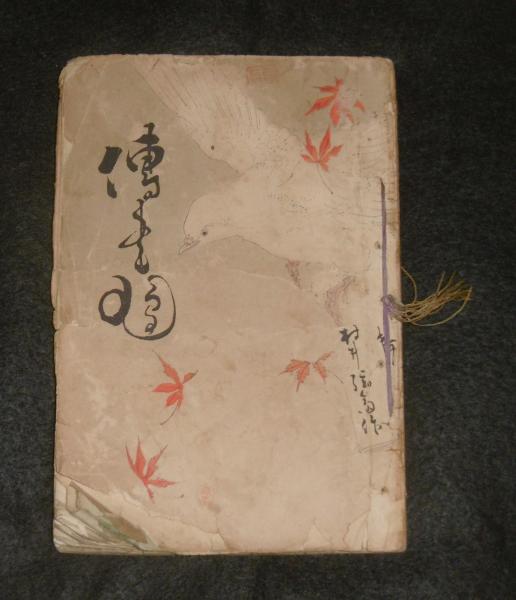 傳書鳩
村井弦斎作